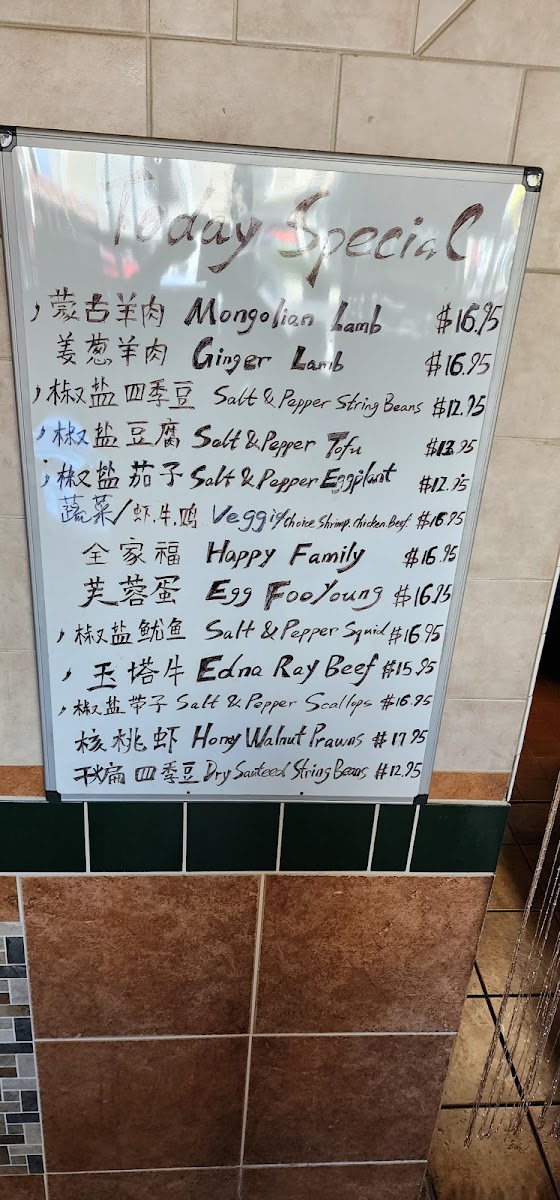 Today Special
, 蒙古羊肉 Mongolian Lamb $16.95
姜葱羊肉 Ginger Lamb $16.95
, 椒盐四季豆 Salt & Pepper String Beans $12.95
, 椒盐豆腐 Salt & Pepper Tofu $13.95
, 椒盐茄子 Salt & Pepper Eggplant $12.95
蔬菜/虾.牛.鸡 Veggie/choice Shrimp. Chicken. Beef. $16.95
全家福 Happy Family $16.95
芙蓉蛋 Egg Foo Young $16.95
, 椒盐鱿鱼 Salt & Pepper Squid $16.95
, 玉塔牛 Edna Ray Beef $15.95
, 椒盐带子 Salt & Pepper Scallops $16.95
核桃虾 Honey Walnut Prawns $17.95
四季豆 Dry Sauteed String Beans $12.95